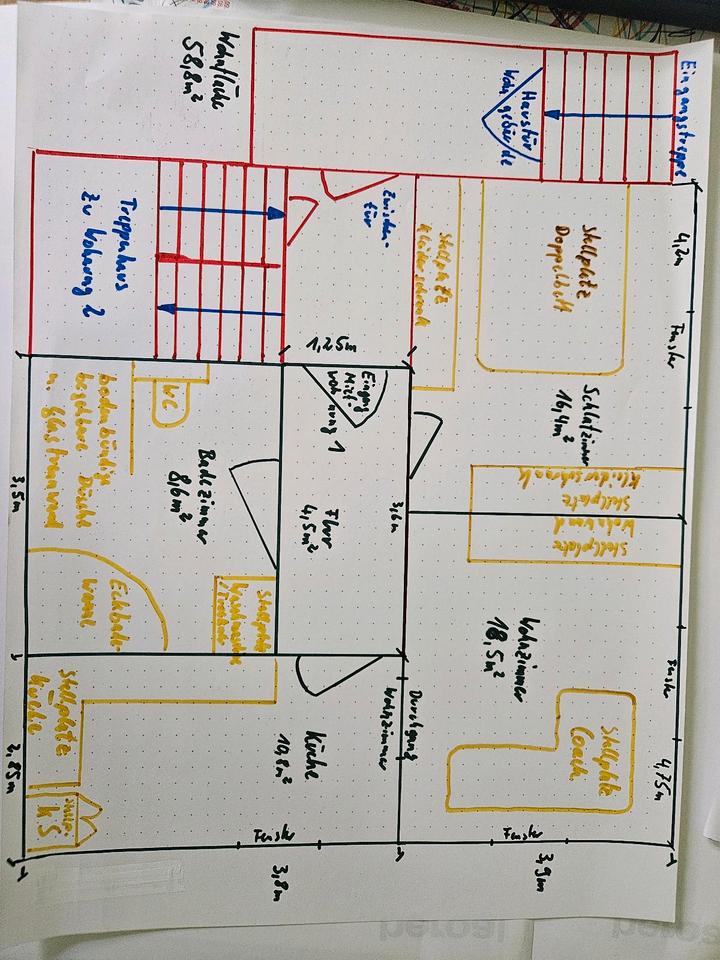 Eingangstreppe
Haustür
Wohngebäude
Wohnfläche
58,8m²
Zwischen-
tür
Treppenhaus
zu Wohnung 2
Stellplatz
Kleiderschrank
Stellplatz
Doppelbett
4,2m
Fenster
Schlafzimmer
16,4m²
Stellplatz
Kleiderschrank
Stellplatz
Wohnwand
1,25m
Eingang
Miet-
wohnung 1
Flur
4,5m²
3,6m
WC
bodenbündige
begehbare Dusche
m. Glastrennwand
Badezimmer
8,6m²
3,5m
Eckbade-
wanne
Stellplatz
Waschmaschine
/Trockner
Wohnzimmer
18,5m²
Fenster
4,75m
Stellplatz
Coach
Fenster
3,9m
Durchgang
Wohnzimmer
Küche
10,8m²
Fenster
3,8m
Stellplatz
Küche
Stellpl.
KS
2,85m